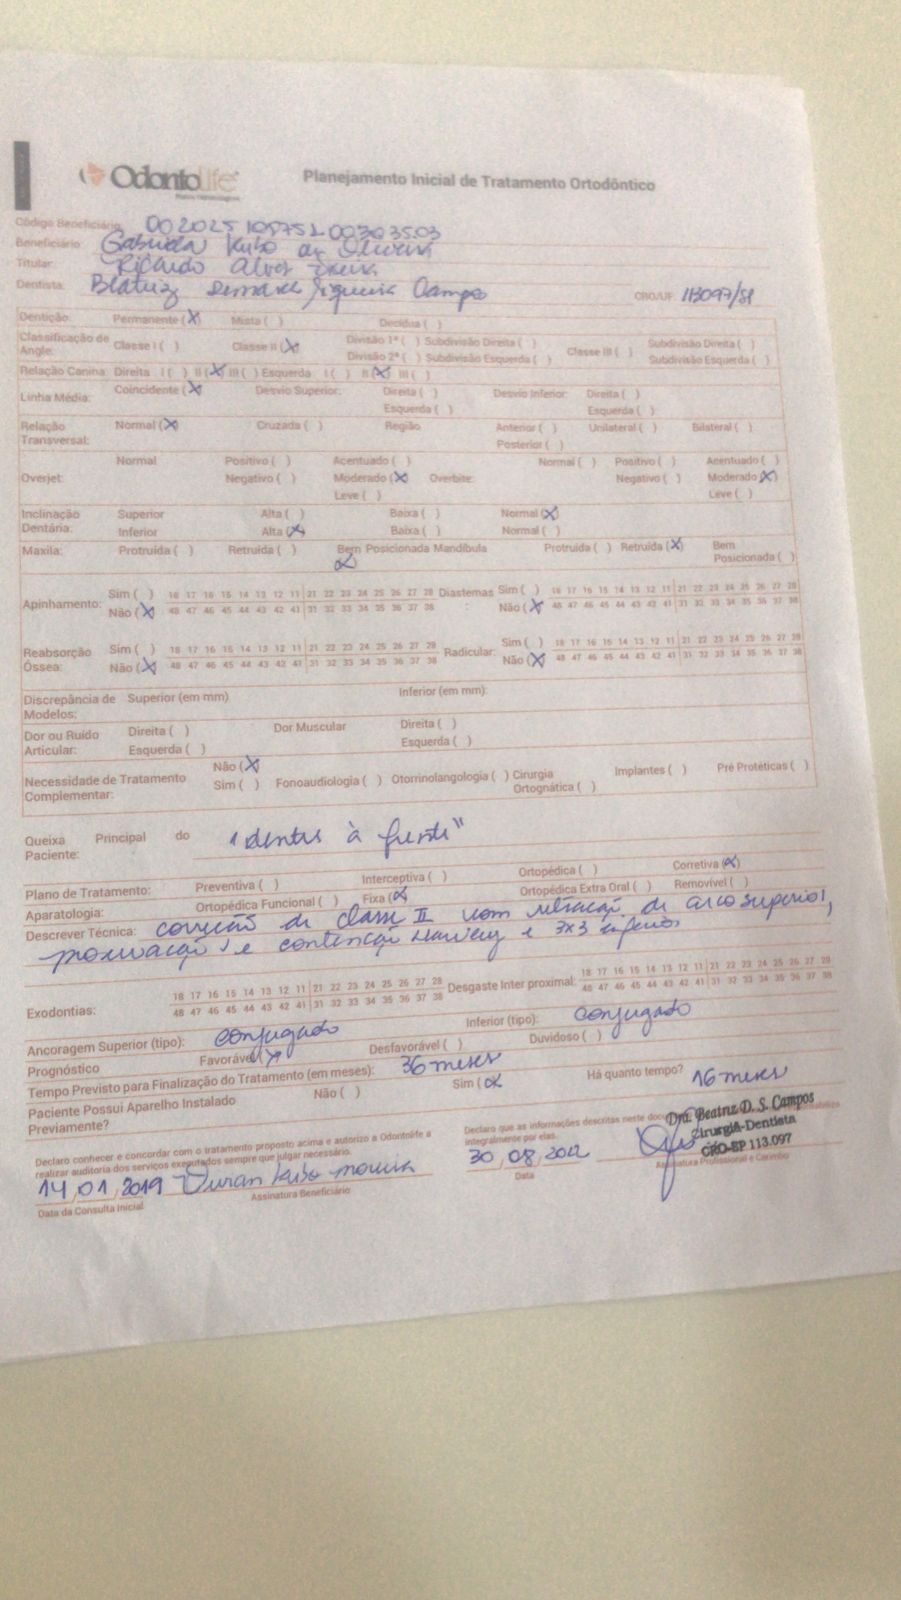 Odontolife
Planejamento Inicial de Tratamento Ortodôntico
Código Beneficiário:
Beneficiário: Gabriela Kubo de Oliveira
Titular: Ricardo Alves
Dentista: Beatriz Siqueira Campos CRO/UF: 113097/SP
Dentição: Permanente (X) Mista ( ) Decídua ( )
Classificação de Angle: Classe I ( ) Classe II (X) Divisão 1ª ( ) Subdivisão Direita ( ) Classe III ( ) Subdivisão Direita ( )
Divisão 2ª ( ) Subdivisão Esquerda ( ) Subdivisão Esquerda ( )
Relação Canina: Direita I ( ) II (X) III ( ) Esquerda I ( ) II (X) III ( )
Linha Média: Coincidente (X) Desvio Superior: Direita ( ) Desvio Inferior: Direita ( )
Esquerda ( ) Esquerda ( )
Relação Transversal: Normal (X) Cruzada ( ) Região Anterior ( ) Unilateral ( ) Bilateral ( )
Posterior ( )
Normal Positivo ( ) Acentuado ( ) Normal ( ) Positivo ( ) Acentuado ( )
Overjet: Negativo ( ) Moderado (X) Overbite: Negativo ( ) Moderado (X)
Leve ( ) Leve ( )
Inclinação Dentária: Superior Alta ( ) Baixa ( ) Normal (X)
Inferior Alta (X) Baixa ( ) Normal ( )
Maxila: Protruída ( ) Retruída ( ) Bem Posicionada (X) Mandíbula Protruída ( ) Retruída (X) Bem Posicionada ( )
Apinhamento: Sim ( ) 18 17 16 15 14 13 12 11 21 22 23 24 25 26 27 28 Diastemas : Sim ( ) 18 17 16 15 14 13 12 11 21 22 23 24 25 26 27 28
Não (X) 48 47 46 45 44 43 42 41 31 32 33 34 35 36 37 38 Não (X) 48 47 46 45 44 43 42 41 31 32 33 34 35 36 37 38
Reabsorção Óssea: Sim ( ) 18 17 16 15 14 13 12 11 21 22 23 24 25 26 27 28 Radicular: Sim ( ) 18 17 16 15 14 13 12 11 21 22 23 24 25 26 27 28
Não (X) 48 47 46 45 44 43 42 41 31 32 33 34 35 36 37 38 Não (X) 48 47 46 45 44 43 42 41 31 32 33 34 35 36 37 38
Discrepância de Modelos: Superior (em mm) Inferior (em mm):
Dor ou Ruído Articular: Direita ( ) Dor Muscular Direita ( )
Esquerda ( ) Esquerda ( )
Não (X)
Necessidade de Tratamento Complementar: Sim ( ) Fonoaudiologia ( ) Otorrinolangologia ( ) Cirurgia Ortognática ( ) Implantes ( ) Pré Protéticas ( )
Queixa Principal do Paciente: "dentes à frente"
Plano de Tratamento: Preventiva ( ) Interceptiva ( ) Ortopédica ( ) Corretiva (X)
Aparatologia: Ortopédica Funcional ( ) Fixa (X) Ortopédica Extra Oral ( ) Removível ( )
Descrever Técnica: correção de classe II com retração de arco superior,
e contenção Hawley e 3x3 inferior
Exodontias: 18 17 16 15 14 13 12 11 21 22 23 24 25 26 27 28 Desgaste Inter proximal: 18 17 16 15 14 13 12 11 21 22 23 24 25 26 27 28
48 47 46 45 44 43 42 41 31 32 33 34 35 36 37 38 48 47 46 45 44 43 42 41 31 32 33 34 35 36 37 38
Ancoragem Superior (tipo): conjugado Inferior (tipo): conjugado
Prognóstico Favorável (X) Desfavorável ( ) Duvidoso ( )
Tempo Previsto para Finalização do Tratamento (em meses): 36 meses
Paciente Possui Aparelho Instalado Previamente? Não ( ) Sim (X) Há quanto tempo? 16 meses
Declaro conhecer e concordar com o tratamento proposto acima e autorizo a Odontolife a
realizar auditoria dos serviços executados sempre que julgar necessário.
Declaro que as informações descritas neste
integralmente por elas.
Dra. Beatriz D. S. Campos
Cirurgiã-Dentista
CRO-SP 113.097
14/01/2019
Data da Consulta Inicial Assinatura Beneficiário
30/08
Data Assinatura Profissional e Carimbo